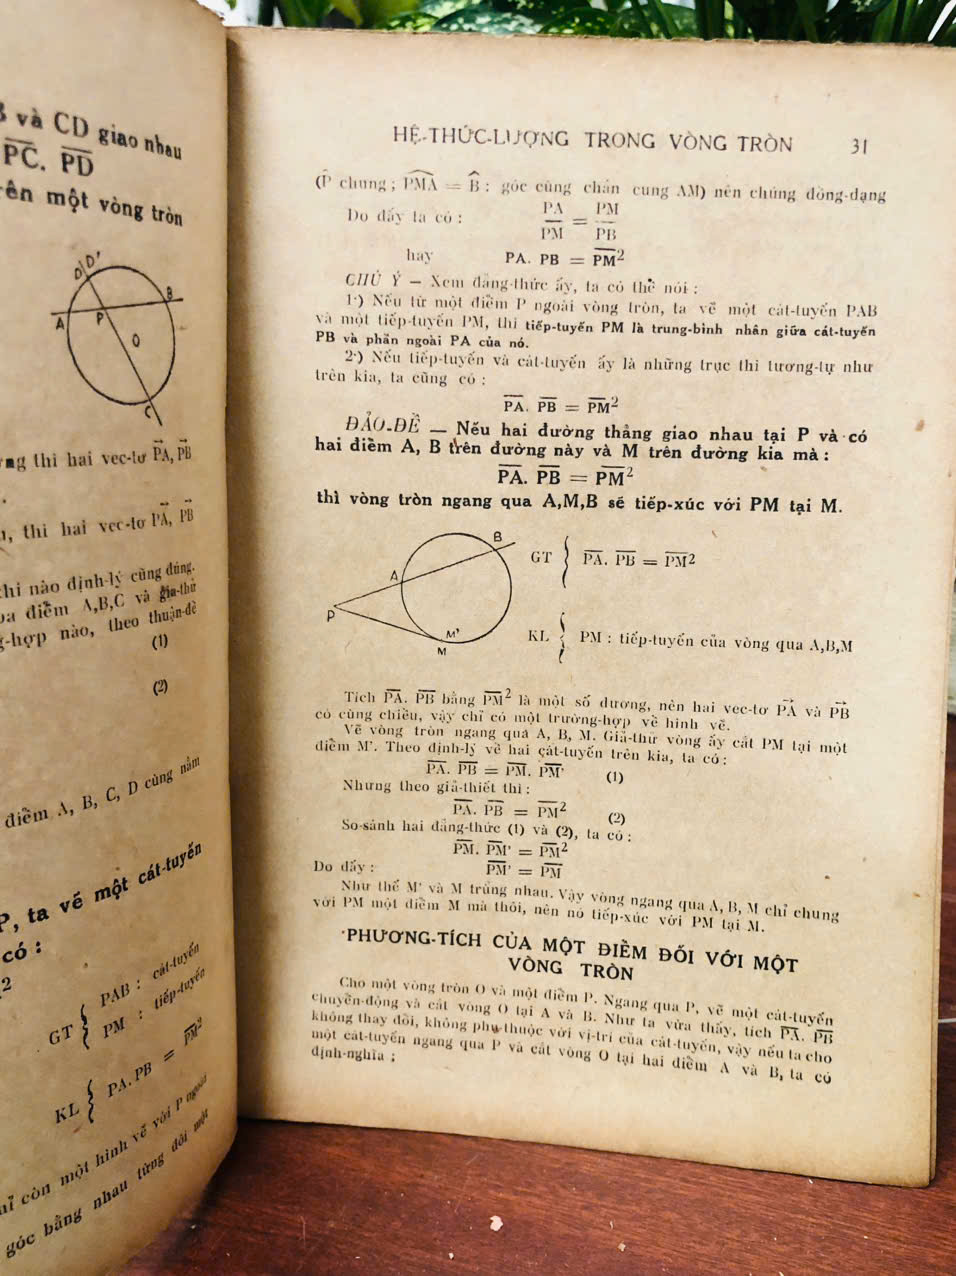 B và CD giao nhau
PC. PD
rên một vòng tròn
D D'
B
A
P
O
C
ng thì hai vec-tơ PA, PB
, thì hai vec-tơ PA, PB
thì nào định-lý cũng đúng.
ba điểm A,B,C và giả-thử
g-hợp nào, theo thuận-đề
(1)
(2)
điểm A, B, C, D cùng nằm
P, ta vẽ một cát-tuyến
có :
2
GT { PAB : cát-tuyến
PM : tiếp-tuyến
KL { PA.PB = PM²
còn một hình vẽ với P ngoài
góc bằng nhau từng đôi một
HỆ-THỨC-LƯỢNG TRONG VÒNG TRÒN 31
(P̂ chung ; PMA = B̂ : góc cùng chắn cung AM) nên chúng đồng-dạng
Do đấy ta có : PA/PM = PM/PB
hay PA. PB = PM²
CHÚ Ý — Xem đẳng-thức ấy, ta có thể nói :
1·) Nếu từ một điểm P ngoài vòng tròn, ta vẽ một cát-tuyến PAB
và một tiếp-tuyến PM, thì tiếp-tuyến PM là trung-bình nhân giữa cát-tuyến
PB và phần ngoài PA của nó.
2·) Nếu tiếp-tuyến và cát-tuyến ấy là những trục thì tương-tự như
trên kia, ta cũng có :
PA. PB = PM²
ĐẢO-ĐỀ — Nếu hai đường thẳng giao nhau tại P và có
hai điểm A, B trên đường này và M trên đường kia mà :
PA. PB = PM²
thì vòng tròn ngang qua A,M,B sẽ tiếp-xúc với PM tại M.
B
A
P
M'
M
GT { PA. PB = PM²
KL { PM : tiếp-tuyến của vòng qua A,B,M
Tích PA. PB bằng PM² là một số dương, nên hai vec-tơ PA và PB
có cùng chiều, vậy chỉ có một trường-hợp về hình vẽ.
Vẽ vòng tròn ngang quá A, B, M. Giả-thử vòng ấy cắt PM tại một
điểm M'. Theo định-lý về hai cát-tuyến trên kia, ta có :
PA. PB = PM. PM' (1)
Nhưng theo giả-thiết thì :
PA. PB = PM² (2)
So-sánh hai đẳng-thức (1) và (2), ta có :
PM. PM' = PM²
Do đấy : PM' = PM
Như thế M' và M trùng nhau. Vậy vòng ngang qua A, B, M chỉ chung
với PM một điểm M mà thôi, nên nó tiếp-xúc với PM tại M.
PHƯƠNG-TÍCH CỦA MỘT ĐIỂM ĐỐI VỚI MỘT
VÒNG TRÒN
Cho một vòng tròn O và một điểm P. Ngang qua P, vẽ một cát-tuyến
chuyển-động và cắt vòng O tại A và B. Như ta vừa thấy, tích PA. PB
không thay đổi, không phụ-thuộc với vị-trí của cát-tuyến, vậy nếu ta cho
một cát-tuyến ngang qua P và cắt vòng O tại hai điểm A và B, ta có
định-nghĩa ;